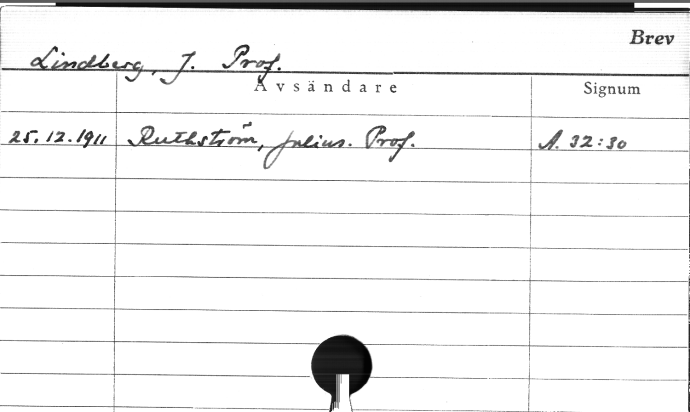 Brev
Lindberg, J. Prof.
Avsändare Signum
25.12.1911 Ruthström, Julius. Prof. A. 32:30